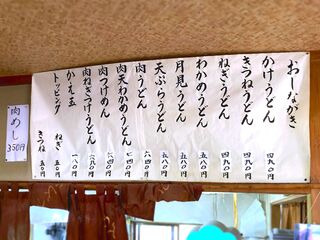 おしながき
かけうどん 四九〇円
きつねうどん 四九〇円
ねぎうどん 四九〇円
わかめうどん 五八〇円
月見うどん 五八〇円
天ぷらうどん 五八〇円
肉うどん 六四〇円
肉天わかめうどん 七四〇円
肉つけめん 六四〇円
肉ねぎつけうどん 六九〇円
かえ玉 一八〇円
トッピング
ねぎ 五〇円
きつね 五〇円
肉めし
350円